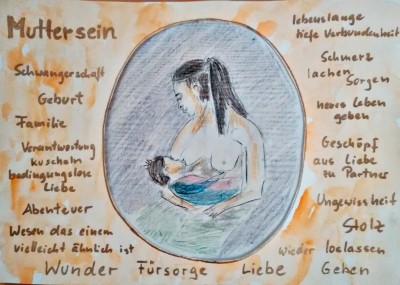 Muttersein
Schwangerschaft
Geburt
Familie
Verantwortung
kuscheln
bedingungslose
Liebe
Abenteuer
Wesen das einem
vielleicht ähnlich ist
lebenslange
tiefe Verbundenheit
Schmerz
lachen
Sorgen
neues Leben
geben
Geschöpf
aus Liebe
zu Partner
Ungewissheit
Stolz
wieder loslassen
Wunder Fürsorge Liebe Geben